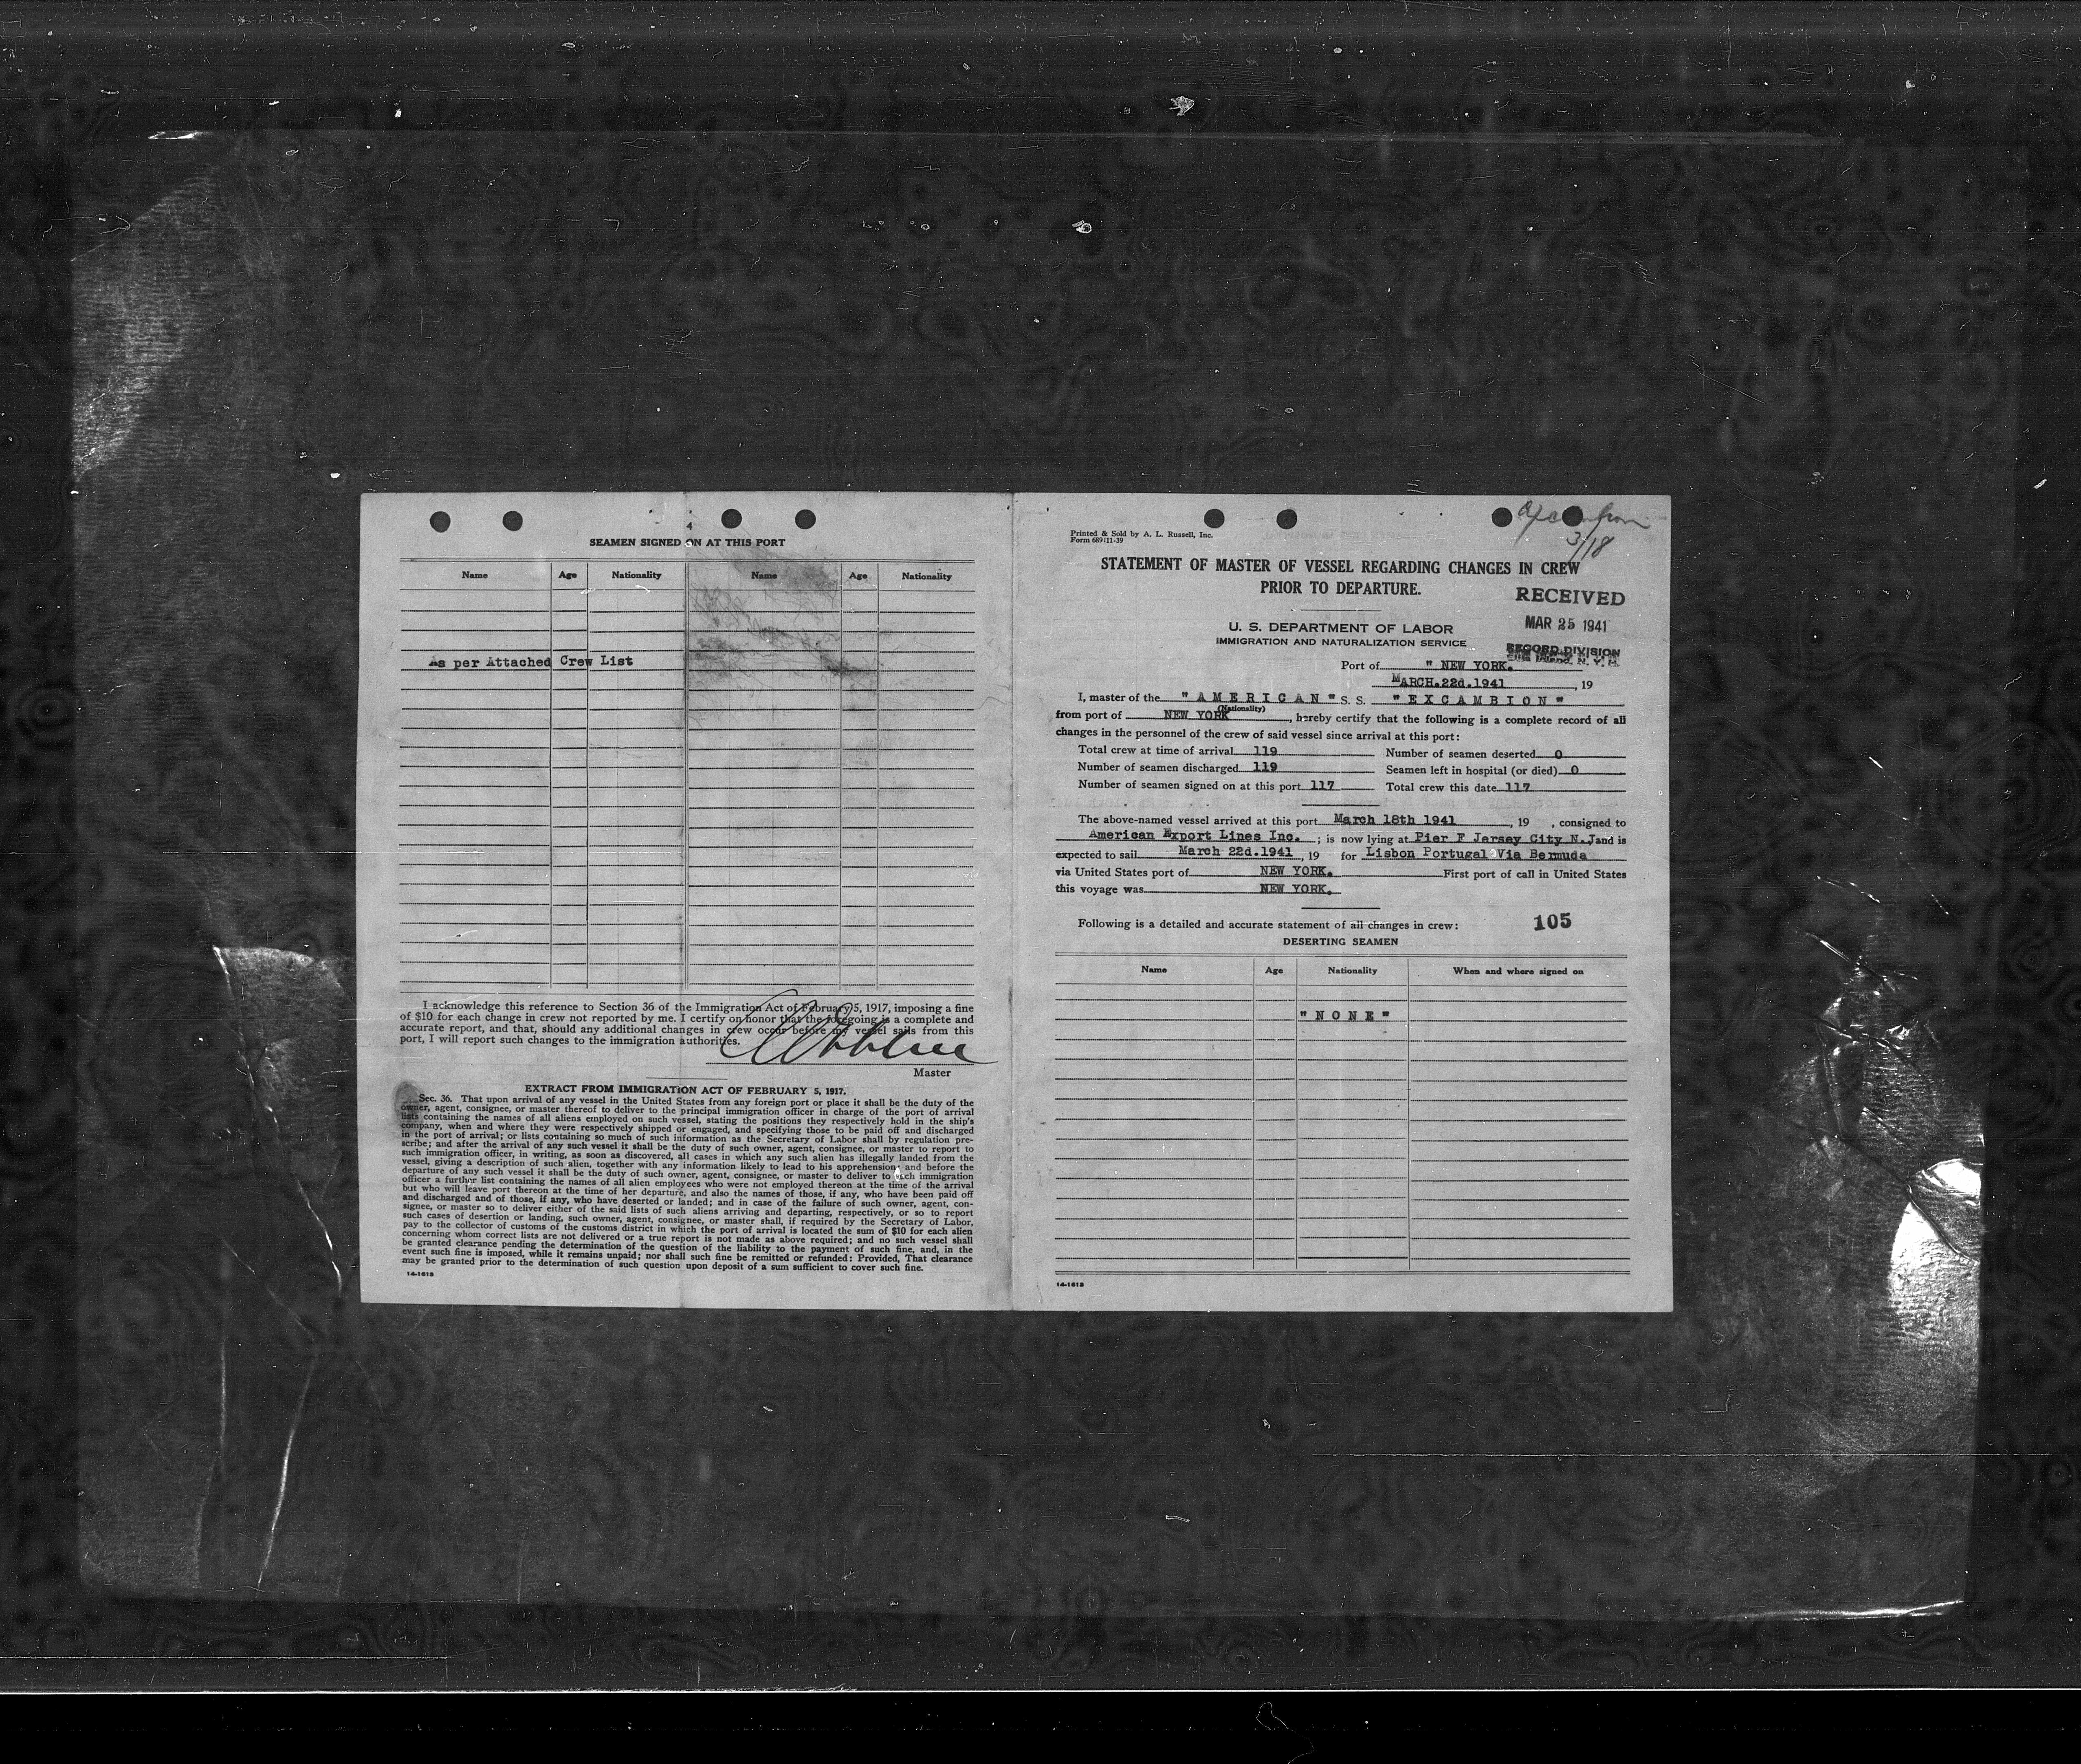 4
SEAMEN SIGNED ON AT THIS PORT
Name Age Nationality Name Age Nationality
As per Attached Crew List
I acknowledge this reference to Section 36 of the Immigration Act of February 5, 1917, imposing a fine
of $10 for each change in crew not reported by me. I certify on honor that the foregoing is a complete and
accurate report, and that, should any additional changes in crew occur before my vessel sails from this
port, I will report such changes to the immigration authorities.
Master
EXTRACT FROM IMMIGRATION ACT OF FEBRUARY 5, 1917.
Sec. 36. That upon arrival of any vessel in the United States from any foreign port or place it shall be the duty of the
owner, agent, consignee, or master thereof to deliver to the principal immigration officer in charge of the port of arrival
lists containing the names of all aliens employed on such vessel, stating the positions they respectively hold in the ship's
company, when and where they were respectively shipped or engaged, and specifying those to be paid off and discharged
in the port of arrival; or lists containing so much of such information as the Secretary of Labor shall by regulation pre-
scribe; and after the arrival of any such vessel it shall be the duty of such owner, agent, consignee, or master to report to
such immigration officer, in writing, as soon as discovered, all cases in which any such alien has illegally landed from the
vessel, giving a description of such alien, together with any information likely to lead to his apprehension; and before the
departure of any such vessel it shall be the duty of such owner, agent, consignee, or master to deliver to such immigration
officer a further list containing the names of all alien employees who were not employed thereon at the time of the arrival
but who will leave port thereon at the time of her departure, and also the names of those, if any, who have been paid off
and discharged and of those, if any, who have deserted or landed; and in case of the failure of such owner, agent, con-
signee, or master so to deliver either of the said lists of such aliens arriving and departing, respectively, or so to report
such cases of desertion or landing, such owner, agent, consignee, or master shall, if required by the Secretary of Labor,
pay to the collector of customs of the customs district in which the port of arrival is located the sum of $10 for each alien
concerning whom correct lists are not delivered or a true report is not made as above required; and no such vessel shall
be granted clearance pending the determination of the question of the liability to the payment of such fine, and, in the
event such fine is imposed, while it remains unpaid; nor shall such fine be remitted or refunded: Provided, That clearance
may be granted prior to the determination of such question upon deposit of a sum sufficient to cover such fine.
14-1613
3/18
Printed & Sold by A. L. Russell, Inc.
Form 689 11-39
STATEMENT OF MASTER OF VESSEL REGARDING CHANGES IN CREW
PRIOR TO DEPARTURE.
RECEIVED
MAR 25 1941
RECORD DIVISION
Ellis Island, N. Y. H.
U. S. DEPARTMENT OF LABOR
IMMIGRATION AND NATURALIZATION SERVICE
Port of " NEW YORK.
MARCH.22d.1941, 19
I, master of the "AMERICAN" S. S. "EXCAMBION"
(Nationality)
from port of NEW YORK, hereby certify that the following is a complete record of all
changes in the personnel of the crew of said vessel since arrival at this port:
Total crew at time of arrival 119 Number of seamen deserted 0
Number of seamen discharged 119 Seamen left in hospital (or died) 0
Number of seamen signed on at this port 117 Total crew this date 117
The above-named vessel arrived at this port March 18th 1941, 19 , consigned to
American Export Lines Inc. ; is now lying at Pier F Jersey City N.J and is
expected to sail March 22d.1941, 19 for Lisbon Portugal Via Bermuda
via United States port of NEW YORK. First port of call in United States
this voyage was NEW YORK.
Following is a detailed and accurate statement of all changes in crew: 105
DESERTING SEAMEN
Name Age Nationality When and where signed on
"NONE"
14-1613